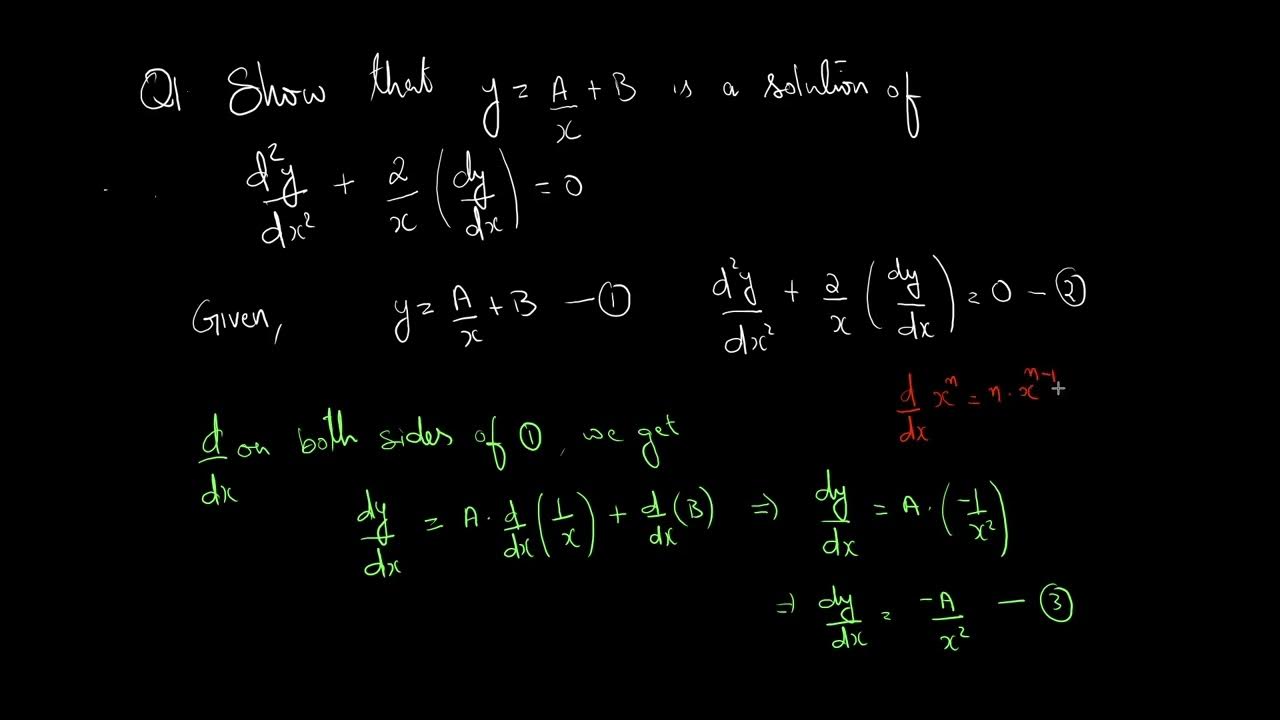 Q1 Show that y = A/x + B is a solution of
d²y/dx² + 2/x (dy/dx) = 0
Given, y = A/x + B — ① d²y/dx² + 2/x (dy/dx) = 0 — ②
d/dx xⁿ = n · xⁿ⁻¹
d/dx on both sides of ①, we get
dy/dx = A · d/dx (1/x) + d/dx (B) ⇒ dy/dx = A · (-1/x²)
⇒ dy/dx = -A/x² — ③